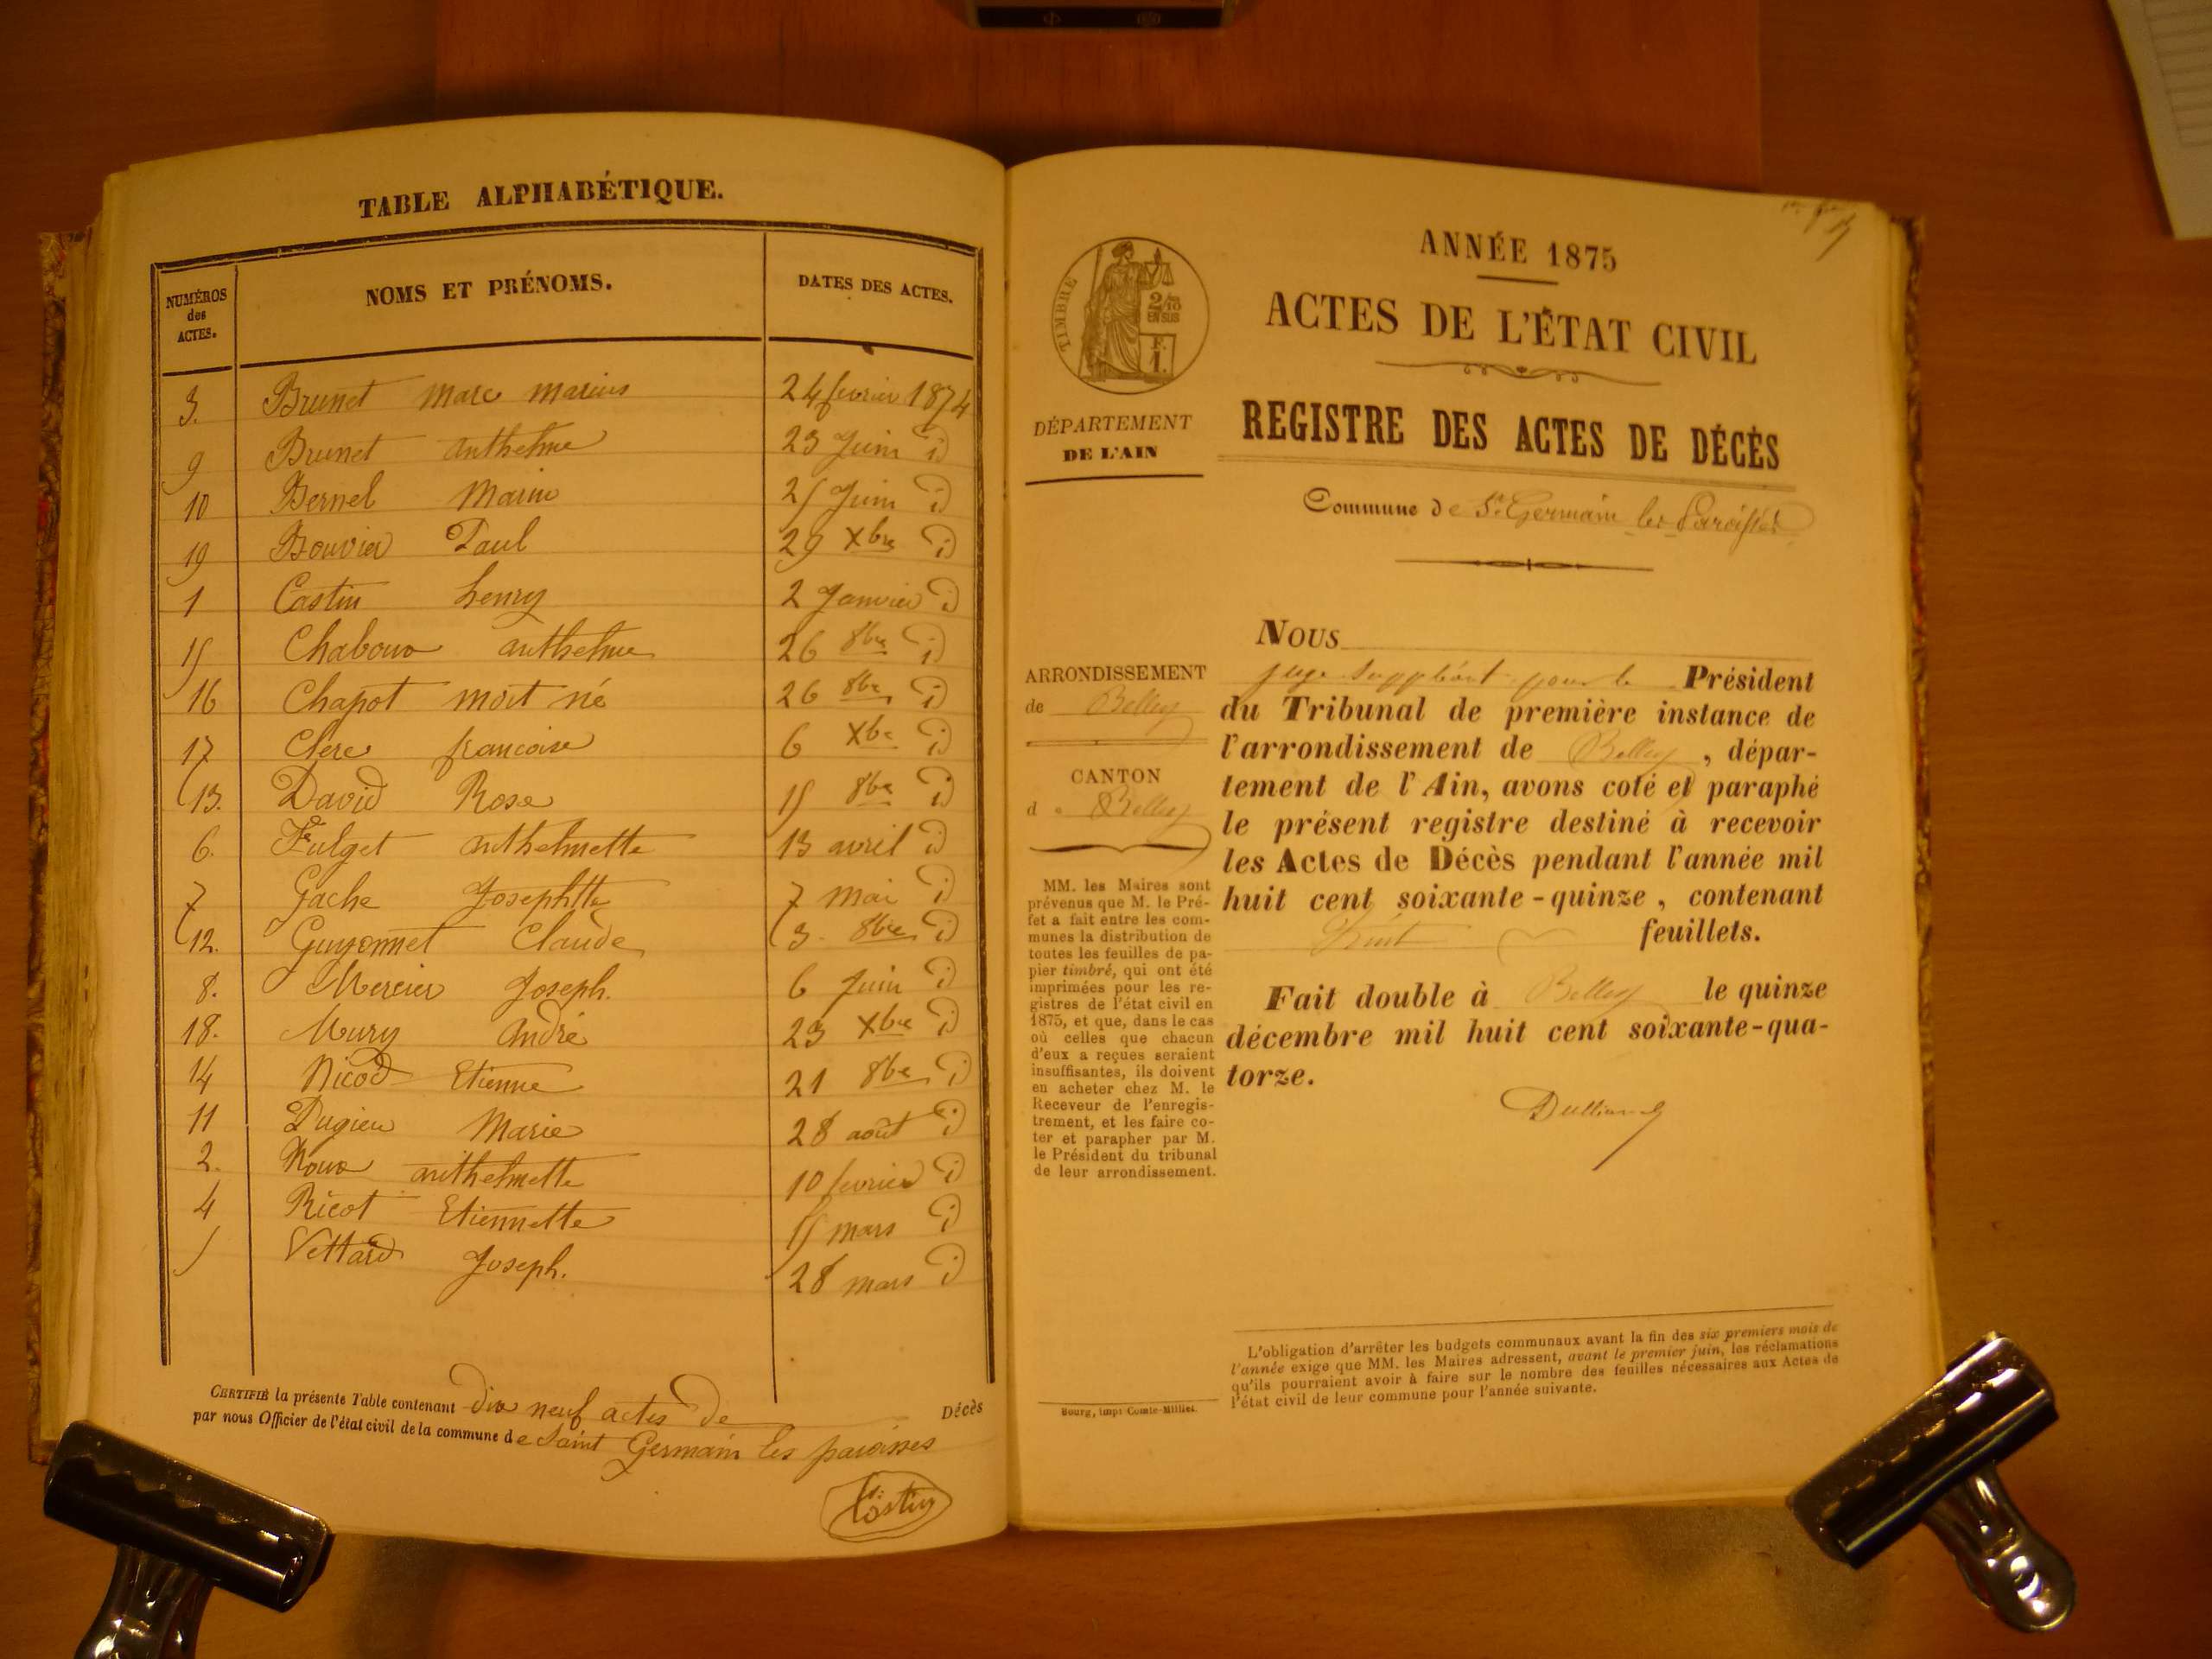 TABLE ALPHABÉTIQUE.
NUMÉROS des ACTES. NOMS ET PRÉNOMS. DATES DES ACTES.
3. Brunet Marc Marius 24 fevrier 1874
9 Brunet anthelme 23 Juin id
10 Bernel Marie 25 Juin id
19 Bouvier Paul 29 Xbre id
1 Castin henry 2 Janvier id
15 Chaboux anthelme 26 8bre id
16 Chapot mort né 26 8bre id
17 Clerc francoise 6 Xbre id
13. David Rose 15 8bre id
6. Fulget anthelmette 13 avril id
7 Gache Josephtte 7 mai id
12. Guyonnet Claude 3. 8bre id
8. Mercier Joseph. 6 Juin id
18. Mury André 23 Xbre id
14 Nicod Etienne 21 8bre id
11 Pugieu Marie 28 août id
2. Roux anthelmette 10 fevrier id
4 Ricot Etiennette 15 mars id
5 Vettard Joseph. 28 mars id
CERTIFIÉ la présente Table contenant dix neuf actes de Décès
par nous Officier de l'état civil de la commune de Saint Germain les paroisses
Castin
ANNÉE 1875
ACTES DE L'ÉTAT CIVIL
REGISTRE DES ACTES DE DÉCÈS
Commune de St. Germain les Paroisses
TIMBRE
2/10
EN SUS
F.
1.
DÉPARTEMENT
DE L'AIN
ARRONDISSEMENT
de Belley
CANTON
de Belley
MM. les Maires sont
prévenus que M. le Pré-
fet a fait entre les com-
munes la distribution de
toutes les feuilles de pa-
pier timbré, qui ont été
imprimées pour les re-
gistres de l'état civil en
1875, et que, dans le cas
où celles que chacun
d'eux a reçues seraient
insuffisantes, ils doivent
en acheter chez M. le
Receveur de l'enregis-
trement, et les faire co-
ter et parapher par M.
le Président du tribunal
de leur arrondissement.
NOUS
juge suppléant pour le Président
du Tribunal de première instance de
l'arrondissement de Belley, dépar-
tement de l'Ain, avons coté et paraphé
le présent registre destiné à recevoir
les Actes de Décès pendant l'année mil
huit cent soixante-quinze, contenant
feuillets.
Fait double à Belley le quinze
décembre mil huit cent soixante-qua-
torze.
L'obligation d'arrêter les budgets communaux avant la fin des six premiers mois de
l'année exige que MM. les Maires adressent, avant le premier juin, les réclamations
qu'ils pourraient avoir à faire sur le nombre des feuilles nécessaires aux Actes de
l'état civil de leur commune pour l'année suivante.
Bourg, impr Comte-Milliet.